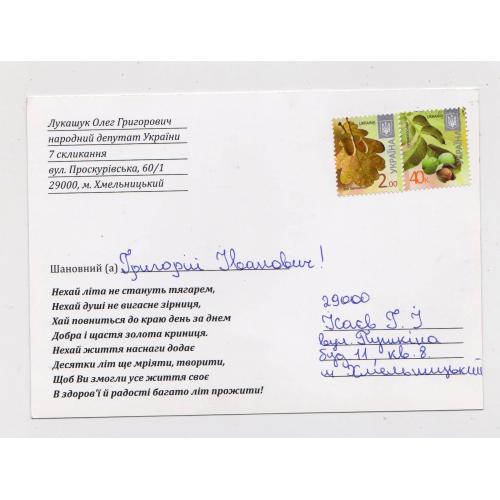 Лукашук Олег Григорович
народний депутат України
7 скликання
вул. Проскурівська, 60/1
29000, м. Хмельницький
UKRAINE
УКРАЇНА
2.00
UKRAINE
УКРАЇНА
40к.
Шановний (а) Григорій Іванович!
Нехай літа не стануть тягарем,
Нехай душі не вигасне зірниця,
Хай повниться до краю день за днем
Добра і щастя золота криниця.
Нехай життя наснаги додає
Десятки літ ще мріяти, творити,
Щоб Ви змогли усе життя своє
В здоров'ї й радості багато літ прожити!
29000
Ісаєв Г. І
вул. Пушкіна
буд 11 кв. 8.
м Хмельницький